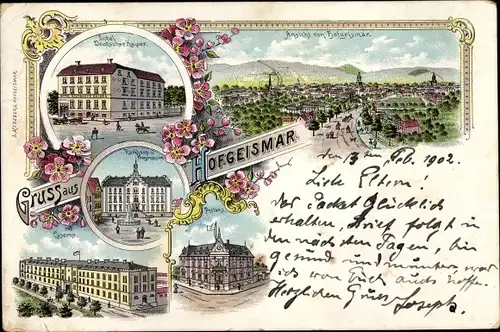 Hotel
Deutscher Kaiser.
Ansicht von Hofgeismar.
HOFGEISMAR.
Gruss aus
Caserne.
den 13ten Feb. 1902.
Liebe Eltern!
Das Packet Glücklich
erhalten, Brief folgt in
den nächsten Tagen, bin
gesund und munter, was
ich von Euch auch hoffe.
Herzlichen Gruss Joseph.